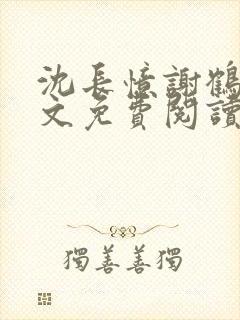 沈長憶謝鶴
文免費閱讀
獨善善獨